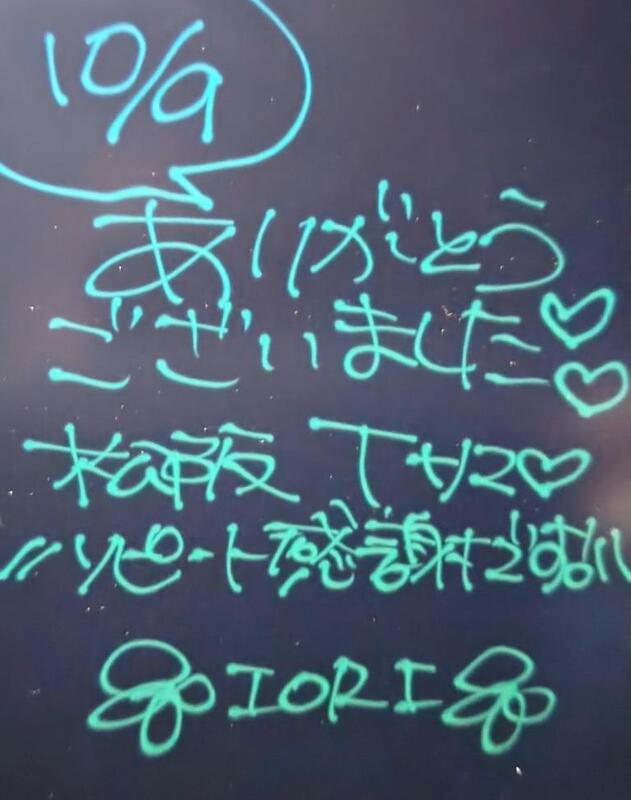 10/9
ありがとう
ございました♡♡
松阪 Tサマ♡
//リピート感謝です!!
IORI